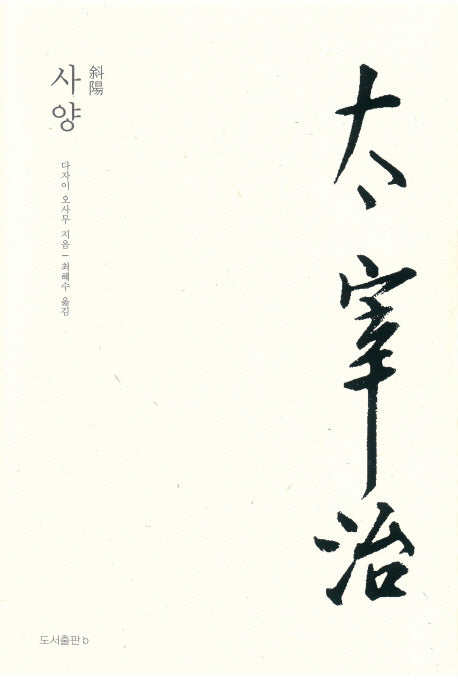 사양
斜陽
다자이 오사무 지음 — 최혜수 옮김
太宰治
도서출판 b